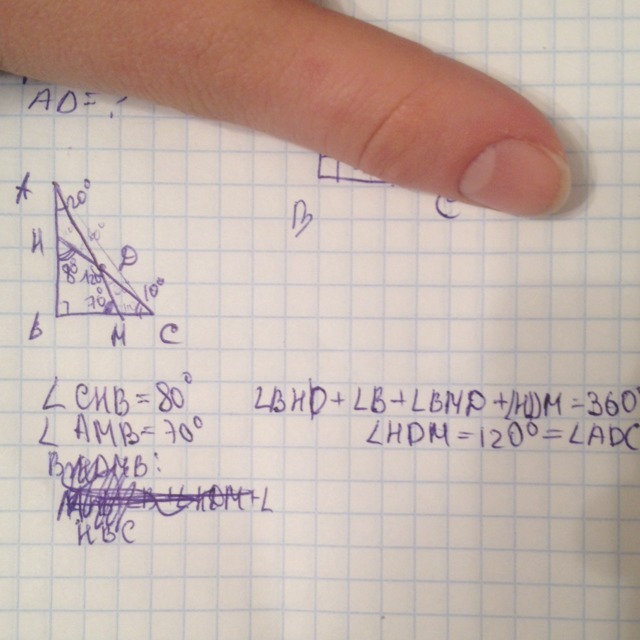 AD = ?
B C
A 20°
H D
80° 120° 70° 10°
B M C
∠ CHB = 80°
∠ AMB = 70°
∠BHD + ∠B + ∠BMD + ∠HDM = 360°
∠HDM = 120° = ∠ADC
HBC